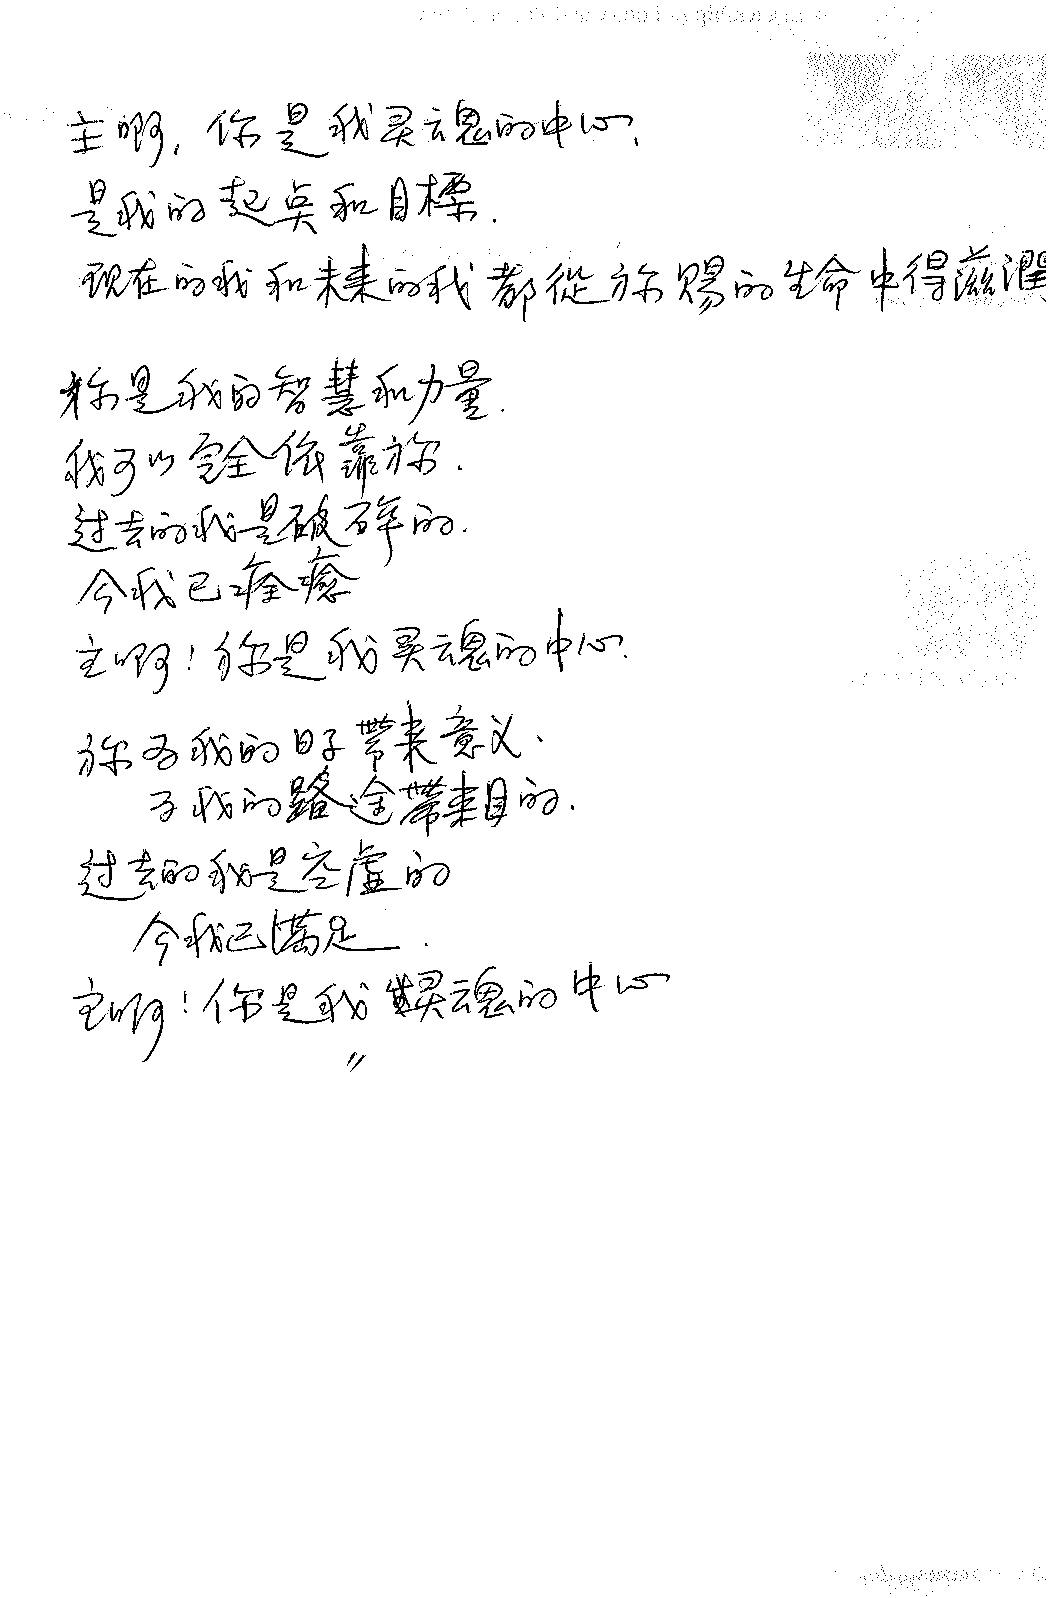 主啊, 你是我灵魂的中心,
是我的起点和目標.
现在的我和未来的我都從祢赐的生命中得滋潤
祢是我的智慧和力量.
我可以完全依靠祢.
过去的我是破碎的.
今我已痊癒
主啊! 祢是我灵魂的中心.
祢为我的日子帶来意义、
为我的路途帶来目的.
过去的我是空虛的
今我已满足.
主啊! 你是我灵魂的中心